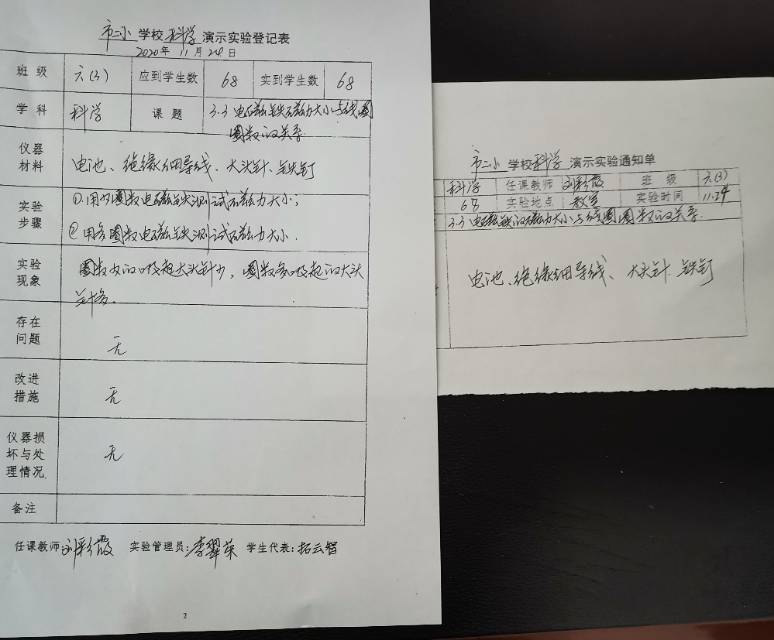 市二小 学校 科学 演示实验登记表
2020年 11月 24日
班级 六(3) 应到学生数 68 实到学生数 68
学科 科学 课题 3.3电磁铁磁力大小与线圈
圈数的关系
仪器
材料
电池、绝缘细导线、大头针、铁钉
实验
步骤
①用少圈数电磁铁测试磁力大小；
②用多圈数电磁铁测试磁力大小.
实验
现象
圈数少的吸起大头针少，圈数多吸起的大头
针多。
存在
问题
无
改进
措施
无
仪器损
坏与处
理情况.
无
备注
任课教师 刘彩霞 实验管理员: 李翠荣 学生代表: 拓云智
2
市二小 学校 科学 演示实验通知单
科学 任课教师 刘彩霞 班级 六(3)
68 实验地点 教室 实验时间 11.24
3.3电磁铁的磁力大小与线圈圈数的关系.
电池、绝缘细导线、大头针 铁钉